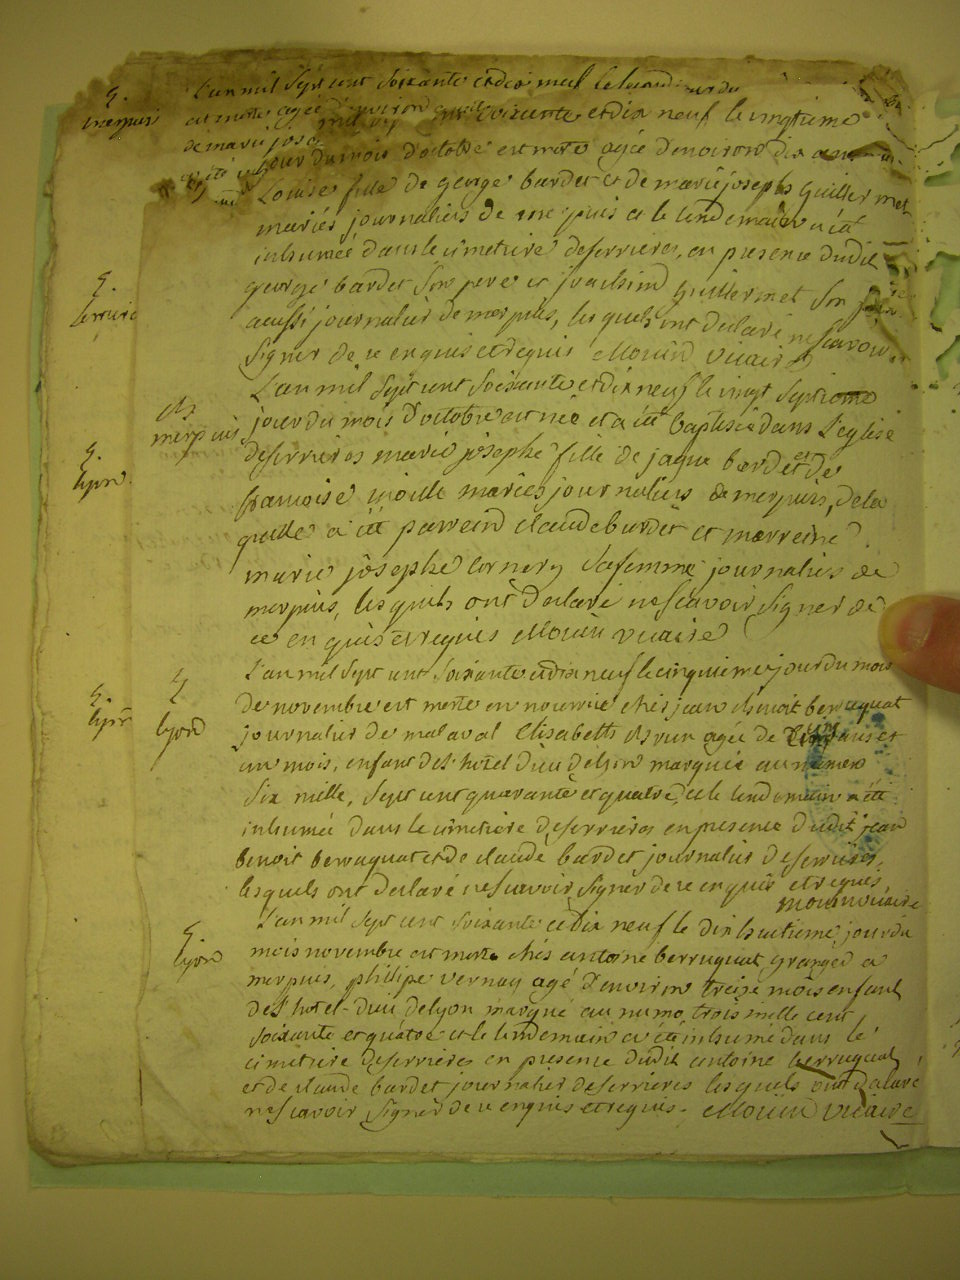 L'an mil sept cent soixante et dix neuf le
est morte agée d'environ
merpuis
de marie josep
soixante et dix neuf le vingtieme
jour du mois d'octobre est morte agée denviron dix
Louise fille de george bardet et de marie josephe Guillermet
mariés journaliers de merpuis et le lendemain a été
inhumée dans le cimetiere deserrieres, en presence dudit
george bardet son pere et joachim guillermet son
aussi journalier de merpuis, lesquels ont declaré ne scavoir
signer de ce enquis et requis Mouin vicaire
L'an mil sept cent soixante et dix neuf le vingt septieme
merpuis
jour du mois d'octobre est née et a été baptisée dans l'eglise
deserrieres marie josephe fille de jaque bardet et de
lyon
francoise mariés journaliers de merpuis, de la
quelle a été parrein claude bardet et marreine
marie josephe cornery sa femme journaliers de
merpuis, lesquels ont declaré ne scavoir signer de
ce enquis et requis Mouin vicaire
L'an mil sept cent soixante et dix neuf le cinquieme jour du mois
de novembre est morte en nourrice chés jean benoit berruquat
lyon
journalier de malaval Elisabeth agée de ans et
un mois, enfant del'hotel dieu delyon marquée au numero
six mille, sept cent quarante et quatre, et le lendemain a été
inhumée dans le cimetiere deserrieres en presence dudit jean
benoit berruquat et de claude bardet journalier deserrieres,
lesquels ont declaré ne scavoir signer de ce enquis et requis
Mouin vicaire
L'an mil sept cent soixante et dix neuf le dix huitieme jour du
lyon
mois novembre est mort chés antoine berruquat granger a
merpuis, philipe vernay agé d'environ treize mois enfant
del'hotel-dieu delyon marqué au numo trois mille cent
soixante et quatre et le lendemain a été inhumé dans le
cimetiere deserrieres en presence dudit antoine berruquat
et de claude bardet journalier deserrieres lesquels ont declaré
ne scavoir signer de ce enquis et requis. Mouin vicaire